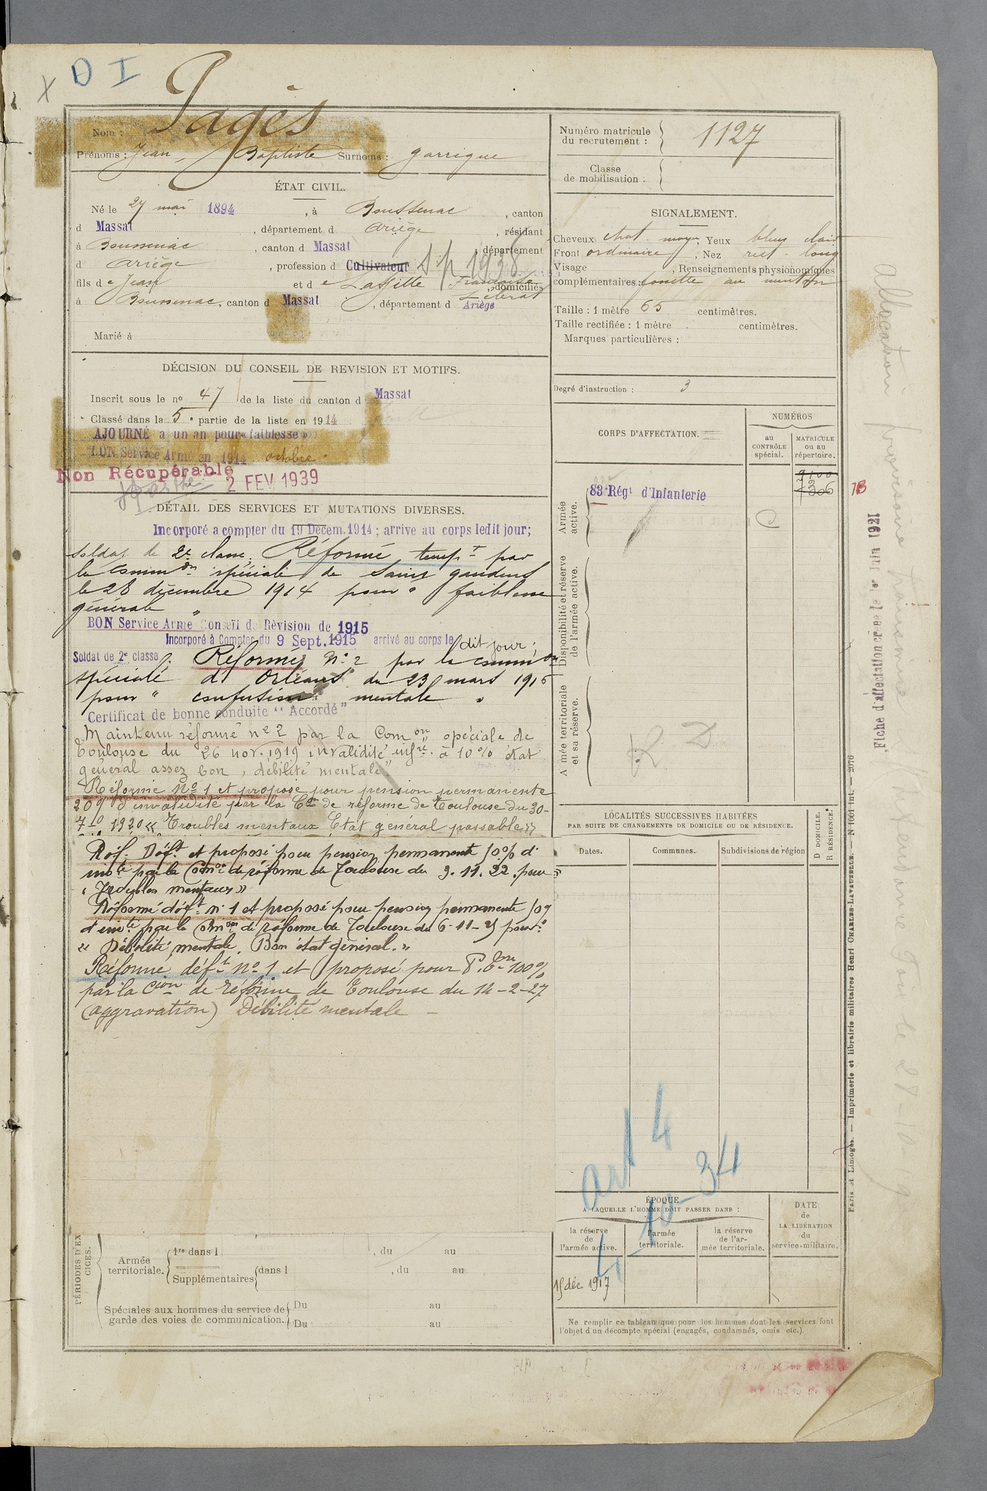 X D I
Nom : Pagès
Prénoms : Jean Baptiste Surnoms : Garrigue
Numéro matricule du recrutement : 1127
Classe de mobilisation :
ÉTAT CIVIL.
Né le 27 mai 1894, à Boussenac, canton
d Massat, département d Ariège, résidant
à Boussenac, canton d Massat, département
d Ariège, profession d Cultivateur S/p 1938
fils de Jean et de Laffitte Françoise, domiciliés
à Boussenac, canton d Massat, département d Ariège
Marié à
SIGNALEMENT.
Cheveux chat. moy. Yeux bleu clair
Front ordinaire, Nez rect. long
Visage , Renseignements physionomiques
complémentaires : fossette au menton
Taille : 1 mètre 65 centimètres.
Taille rectifiée : 1 mètre centimètres.
Marques particulières :
Degré d'instruction : 3
DÉCISION DU CONSEIL DE REVISION ET MOTIFS.
Inscrit sous le no 47 de la liste du canton d Massat
Classé dans la 5e partie de la liste en 1914
AJOURNÉ à un an pour « faiblesse »
BON Service Armé en 1914 octobre
Non Récupérable
2 FEV 1939
DÉTAIL DES SERVICES ET MUTATIONS DIVERSES.
Incorporé a compter du 19 Décem. 1914 ; arrive au corps ledit jour;
soldat de 2e classe. Réformé tempt par
la common spéciale de Saint gaudens
le 28 décembre 1914 pour " faiblesse
générale "
BON Service Armé Conseil de Révision de 1915
Incorporé à Compter du 9 Sept. 1915 arrivé au corps le dit jour ;
Soldat de 2e classe. Réformé No 2 par la common
spéciale d'Orléans du 23 mars 1916
pour " confusion mentale "
Certificat de bonne conduite "Accordé"
Maintenu réformé no 2 par la Comon spéciale de
Toulouse du 26 nov. 1919 invalidité infre à 10 % état
général assez bon, débilité mentale"
Réformé No 1 et proposé pour pension permanente
20% d'invalidité par la Con de réforme de Toulouse du 30-
7-1920 « Troubles mentaux, Etat général passable »
Réf. Déft et proposé pour pension permanente 10% d'
invté par la Comon de réforme de Toulouse du 9.11.22. pour
« Troubles mentaux »
Réformé déft no 1 et proposé pour pension permanente 10%
d'invté par la Comon de réforme de Toulouse du 6-11-25 pour :
« Débilité mentale. Bon état général. »
Réformé déft no 1 et proposé pour P. 100%
par la Cion de réforme de Toulouse du 14-2-27
(aggravation) Débilité mentale
CORPS D'AFFECTATION.
NUMÉROS
au CONTRÔLE spécial.
MATRICULE ou au répertoire.
Armée active.
83 Régt d'Infanterie
Disponibilité et réserve de l'armée active.
Armée territoriale et sa réserve.
LOCALITÉS SUCCESSIVES HABITÉES
PAR SUITE DE CHANGEMENTS DE DOMICILE OU DE RÉSIDENCE.
Dates.
Communes.
Subdivisions de région
D DOMICILE.
R RÉSIDENCE.
art 4
4-10-34
ÉPOQUE
A LAQUELLE L'HOMME DOIT PASSER DANS :
la réserve de l'armée active.
l'armée territoriale.
la réserve de l'armée territoriale.
DATE de LA LIBÉRATION du service militaire.
15 déc. 1917
Ne remplir ce tableau que pour les hommes dont les services font
l'objet d'un décompte spécial (engagés, condamnés, omis etc.)
PÉRIODES D'EXERCICES.
Armée territoriale.
1re dans l , du au
Supplémentaires dans l , du au
Spéciales aux hommes du service de garde des voies de communication.
Du au
Du au
Fiche d'affectation créée le 1er Juin 1921
Allocation provisoire
Paris et Limoges. — Imprimerie et librairie militaires Henri CHARLES-LAVAUZELLE.